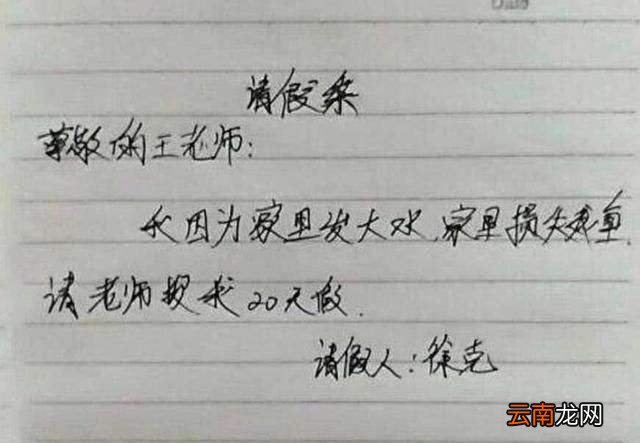 请假条
尊敬的王老师:
我因为家里发大水,家里损失重,
请老师我20天假.
请假人:徐克
云南龙网